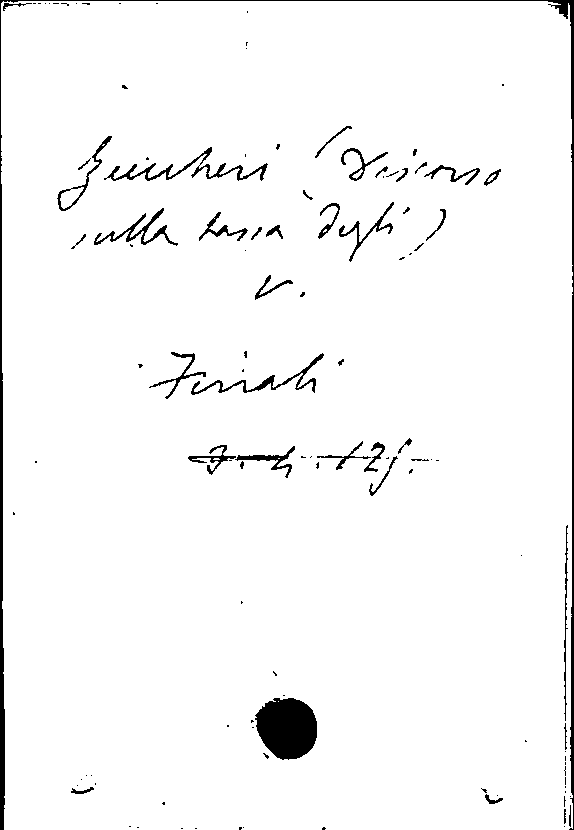 Zuccheri (Discorso
sulla tassa degli)
v.
Ferrali
7.4.125.